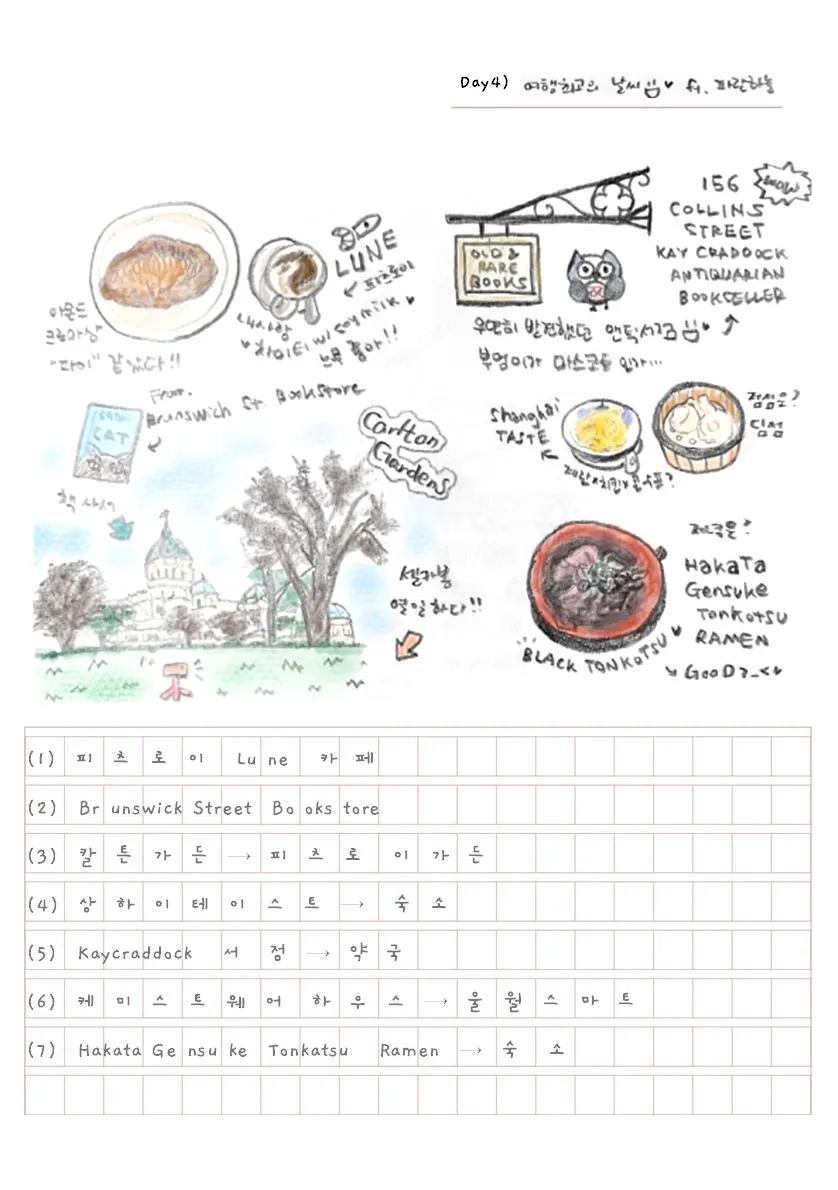 Day4) 여행최고의 날씨님♥ ft. 파란하늘
LUNE
↙ 피츠로이
아몬드
크로와상
"파이" 같았다!!
내사랑
차이티 w/ soymilk
느무 좋아!!
From.
Brunswich St Bookstore
CAT
책 사서
Carlton
Gardens
셀카봉
열일하다!!
OLD &
RARE
BOOKS
156
COLLINS
STREET
KAY CRADDOCK
ANTIQUARIAN
BOOKSELLER
WOW
우연히 발견했던 앤틱서점님♥
부엉이가 마스코트 인가...
Shanghai
TASTE
계란x치킨x콘수프?
점심은?
딤섬
저녁은?
HAKATA
Gensuke
Tonkotsu
RAMEN
BLACK TONKOTSU
GOOD
(1) 피츠로이 Lune 카페
(2) Brunswick Street Bookstore
(3) 칼튼가든 → 피츠로이가든
(4) 상하이테이스트 → 숙소
(5) Kaycraddock 서점 → 약국
(6) 케미스트웨어하우스 → 울월스마트
(7) Hakata Gensuke Tonkatsu Ramen → 숙소